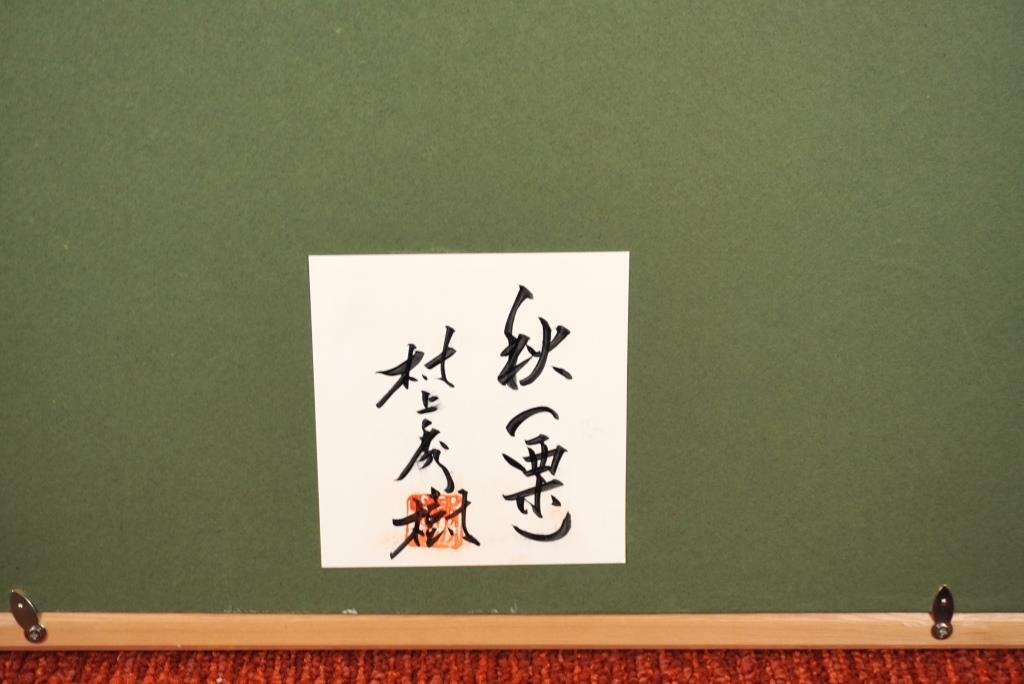 秋（栗）
村上秀樹